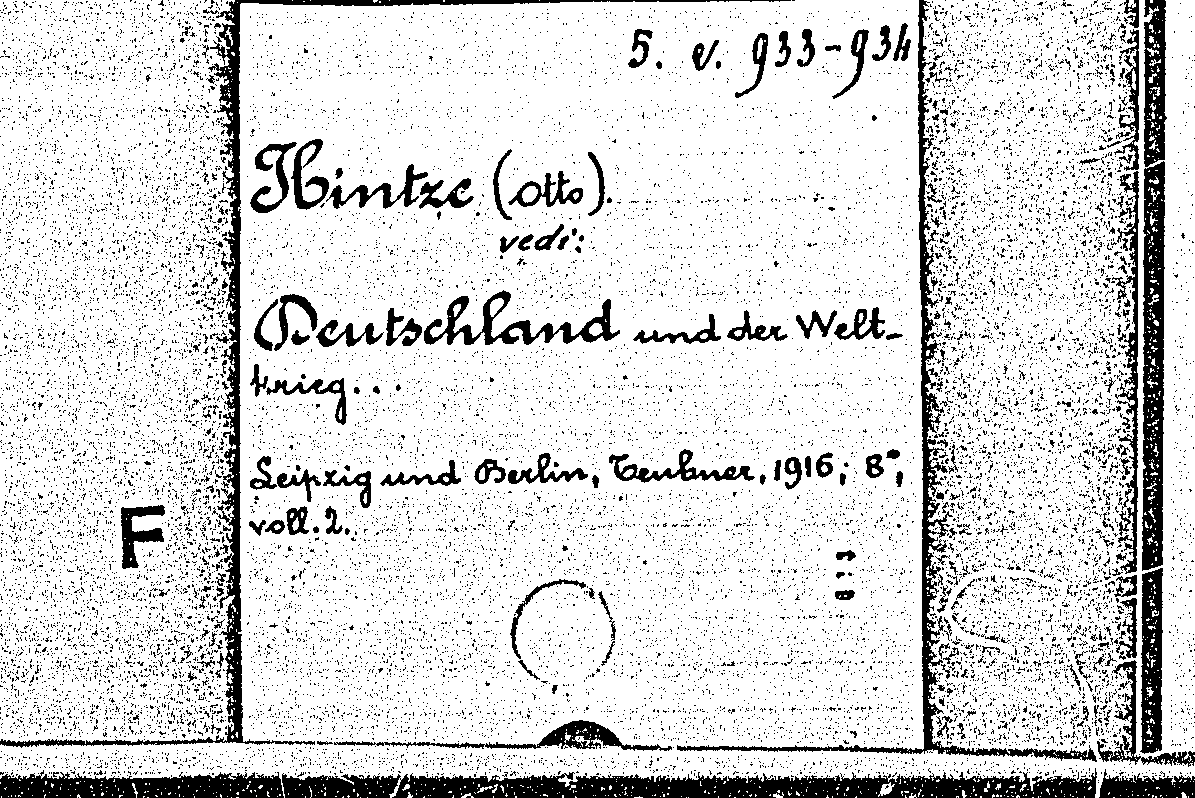 5. v. 933-934
Hintze (Otto).
vedi:
Deutschland und der Welt-
krieg...
Leipzig und Berlin, Teubner, 1916; 8°,
voll. 2.
F